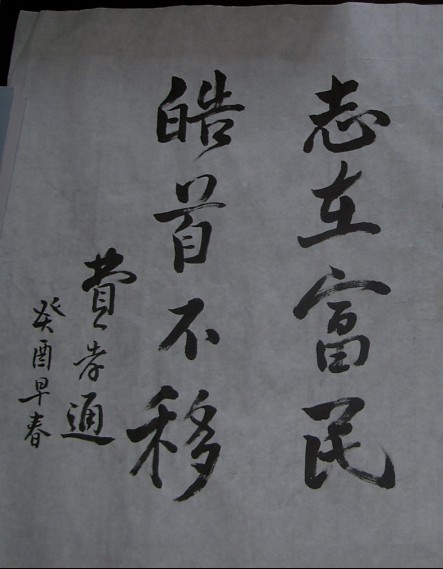 志在富民
皓首不移
費孝通
癸酉早春